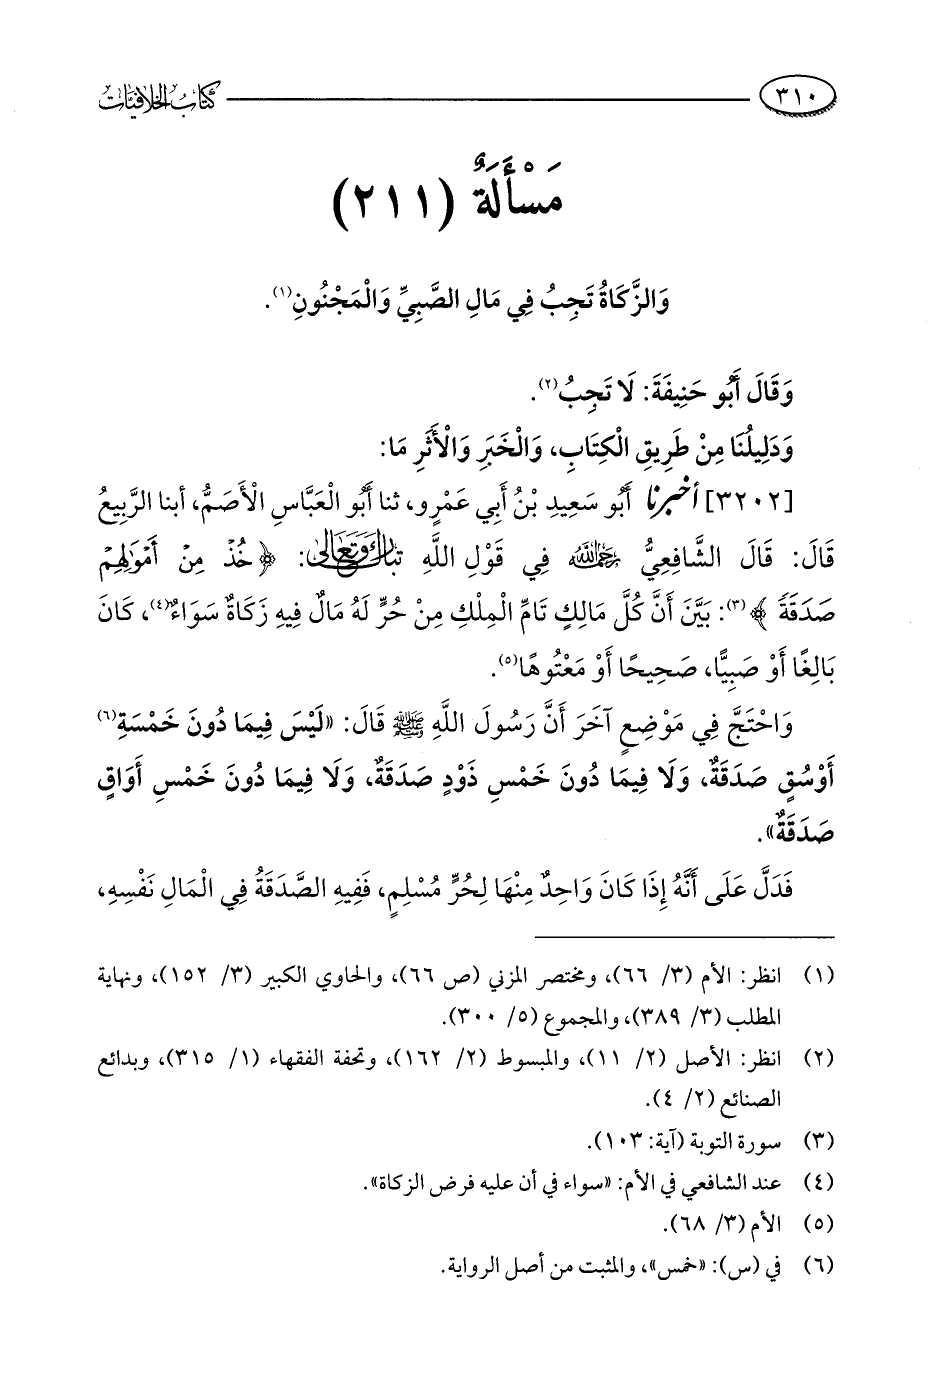 ٣١٠ كتاب الخلافيات
مَسْأَلَةٌ (٢١١)
وَالزَّكَاةُ تَجِبُ فِي مَالِ الصَّبِيِّ وَالْمَجْنُونِ(١).
وَقَالَ أَبُو حَنِيفَةَ: لَا تَجِبُ(٢).
وَدَلِيلُنَا مِنْ طَرِيقِ الْكِتَابِ، وَالْخَبَرِ وَالْأَثَرِ مَا:
[٣٢٠٢] أخبرنا أَبُو سَعِيدِ بْنُ أَبِي عَمْرٍو، ثنا أَبُو الْعَبَّاسِ الْأَصَمُّ، أبنا الرَّبِيعُ
قَالَ: قَالَ الشَّافِعِيُّ رَحِمَهُ اللَّهُ فِي قَوْلِ اللَّهِ تَبَارَكَ وَتَعَالَى: ﴿خُذْ مِنْ أَمْوَٰلِهِمْ
صَدَقَةً﴾(٣): بَيَّنَ أَنَّ كُلَّ مَالِكٍ تَامِّ الْمِلْكِ مِنْ حُرٍّ لَهُ مَالٌ فِيهِ زَكَاةٌ سَوَاءٌ(٤)، كَانَ
بَالِغًا أَوْ صَبِيًّا، صَحِيحًا أَوْ مَعْتُوهًا(٥).
وَاحْتَجَّ فِي مَوْضِعٍ آخَرَ أَنَّ رَسُولَ اللَّهِ ﷺ قَالَ: «لَيْسَ فِيمَا دُونَ خَمْسَةِ(٦)
أَوْسُقٍ صَدَقَةٌ، وَلَا فِيمَا دُونَ خَمْسِ ذَوْدٍ صَدَقَةٌ، وَلَا فِيمَا دُونَ خَمْسِ أَوَاقٍ
صَدَقَةٌ».
فَدَلَّ عَلَى أَنَّهُ إِذَا كَانَ وَاحِدٌ مِنْهَا لِحُرٍّ مُسْلِمٍ، فَفِيهِ الصَّدَقَةُ فِي الْمَالِ نَفْسِهِ،
(١) انظر: الأم (٣/ ٦٦)، ومختصر المزني (ص ٦٦)، والحاوي الكبير (٣/ ١٥٢)، ونهاية
المطلب (٣/ ٣٨٩)، والمجموع (٥/ ٣٠٠).
(٢) انظر: الأصل (٢/ ١١)، والمبسوط (٢/ ١٦٢)، وتحفة الفقهاء (١/ ٣١٥)، وبدائع
الصنائع (٢/ ٤).
(٣) سورة التوبة (آية: ١٠٣).
(٤) عند الشافعي في الأم: «سواء في أن عليه فرض الزكاة».
(٥) الأم (٣/ ٦٨).
(٦) في (س): «خمس»، والمثبت من أصل الرواية.